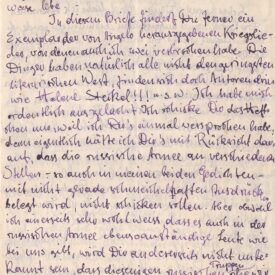 weise lebe.
In diesem Briefe findest Du ferner ein
Exemplar der von Angelo herausgegebenen Kriegslie-
der, von denen auch ich zwei verbrochen habe. Die
Dinger haben natürlich alle nicht den geringsten
literarischen Wert, finden sich doch Autoren drin
wie Stössel!!! u.s.w. Ich habe mich
ordentlich ausgelacht. Ich schicke Dir das Heft-
chen nur, weil ich Dir's einmal versprochen habe,
denn eigentlich hätte ich Dir's mit Rücksicht dar-
auf, dass die russische Armee an verschiedenen
Stellen - so auch in meinen beiden Gedichten -
mit nicht gerade schmeichelhaften Ausdrücken
belegt wird, nicht schicken sollen. Aber obwohl
ich einerseits sehr wohl weiss, dass es auch in der
russischen Armee ebenso anständige Leute wie
bei uns gibt, wird Dir andererseits nicht unbe-
kannt sein, dass diejenigen russischen Truppen